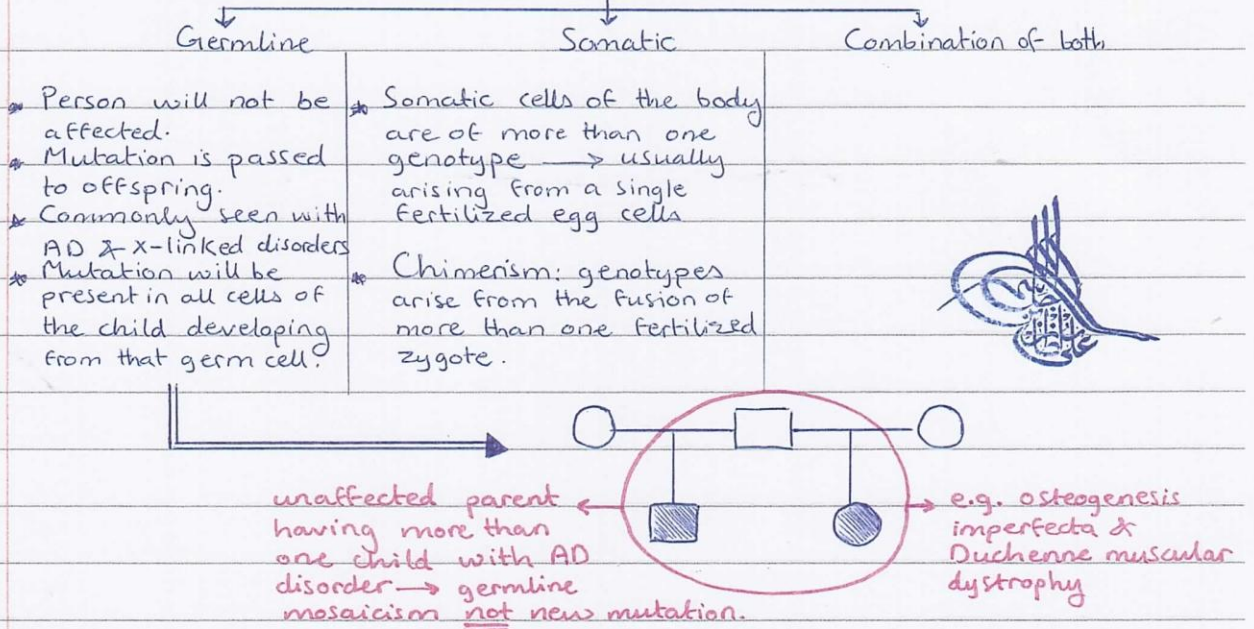 Germline
Somatic
Combination of both.
* Person will not be
affected.
* Mutation is passed
to offspring.
* Commonly seen with
AD & X-linked disorders
* Mutation will be
present in all cells of
the child developing
from that germ cell.
* Somatic cells of the body
are of more than one
genotype → usually
arising from a single
fertilized egg cells
* Chimerism: genotypes
arise from the fusion of
more than one fertilized
zygote.
unaffected parent
having more than
one child with AD
disorder → germline
mosaicism not new mutation.
e.g. osteogenesis
imperfecta &
Duchenne muscular
dystrophy